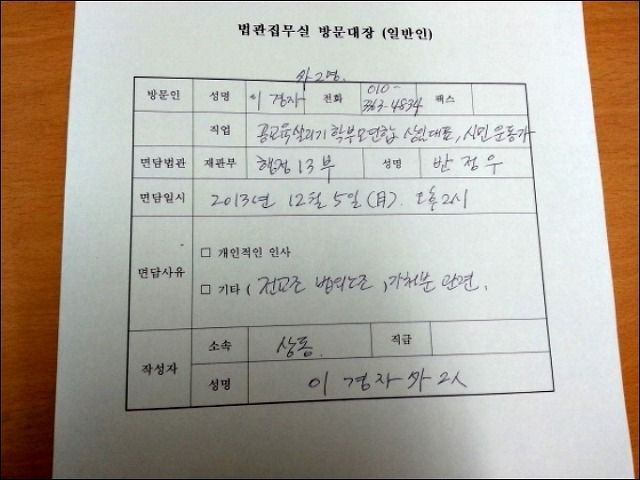 법관집무실 방문대장 (일반인)
外 2명.
방문인 성명 이경자 전화 010-363-4834 팩스
직업 공교육살리기학부모연합 상임대표, 시민운동가
면담법관 재판부 행정 13부 성명 반정우
면담일시 2013년 12월 5일 (月). 오후 2시
면담사유
□ 개인적인 인사
□ 기타 ( 전교조 법외노조 ) 가처분 관련.
작성자 소속 상동. 직급
성명 이경자 外 2人